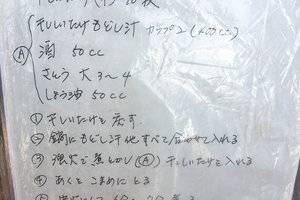 干しいたけもどし汁 カップ2(400cc)
Ⓐ 酒 50cc
さとう 大3〜4
しょう油 50cc
① 干しいたけを戻す。
② 鍋にもどし汁他すべて合わせて入れる
③ 強火で煮とかし(Ⓐ)干しいたけを入れる
④ あくをこまめにとる